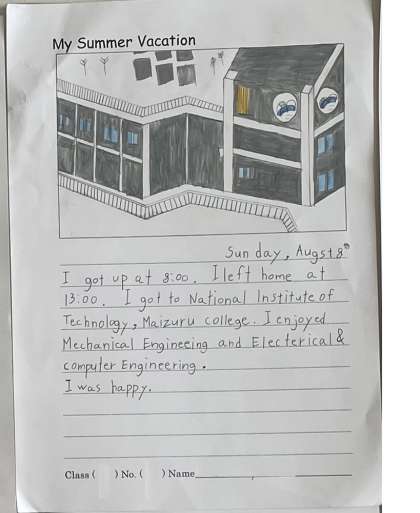 My Summer Vacation
Sunday, Augst 8
I got up at 8:00. I left home at
13:00. I got to National Institute of
Technology, Maizuru college. I enjoyed
Mechanical Engineeing and Electerical &
computer Engineering.
I was happy.
Class ( ) No. ( ) Name